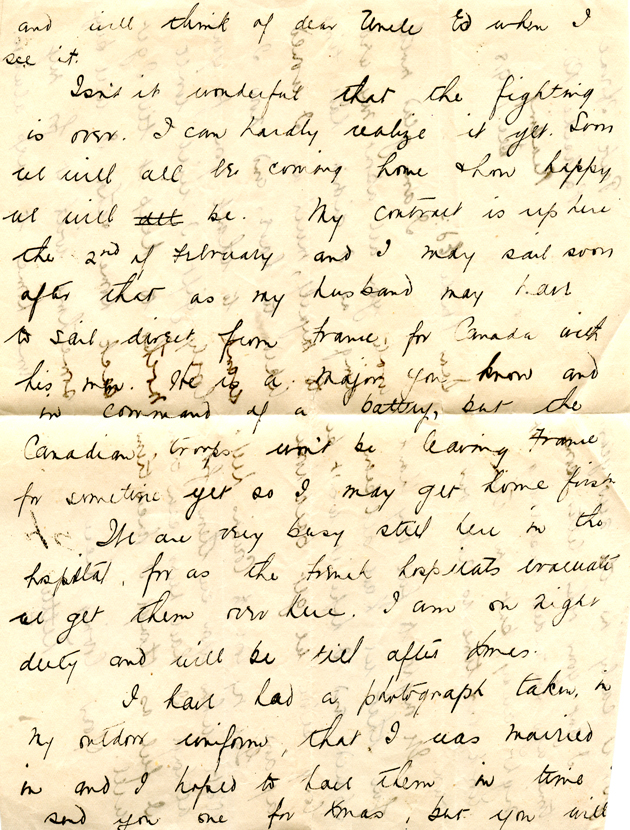 and will think of dear Uncle Ed when I
see it.
Isn't it wonderful that the fighting
is over. I can hardly realize it yet. Soon
we will all be coming home & how happy
we will all be. My contract is up here
the 2nd of February and I may sail soon
after that as my husband may have
to sail direct from France, for Canada with
his men. He is a Major you know and
in command of a battery, but the
Canadian troops won't be leaving France
for sometime yet so I may get home first.
We are very busy still here in the
hospital, for as the French hospitals evacuate
we get them over here. I am on night
duty and will be till after Xmas.
I have had a photograph taken, in
my outdoor uniform, that I was married
in and I hoped to have them in time
send you one for Xmas, but you will